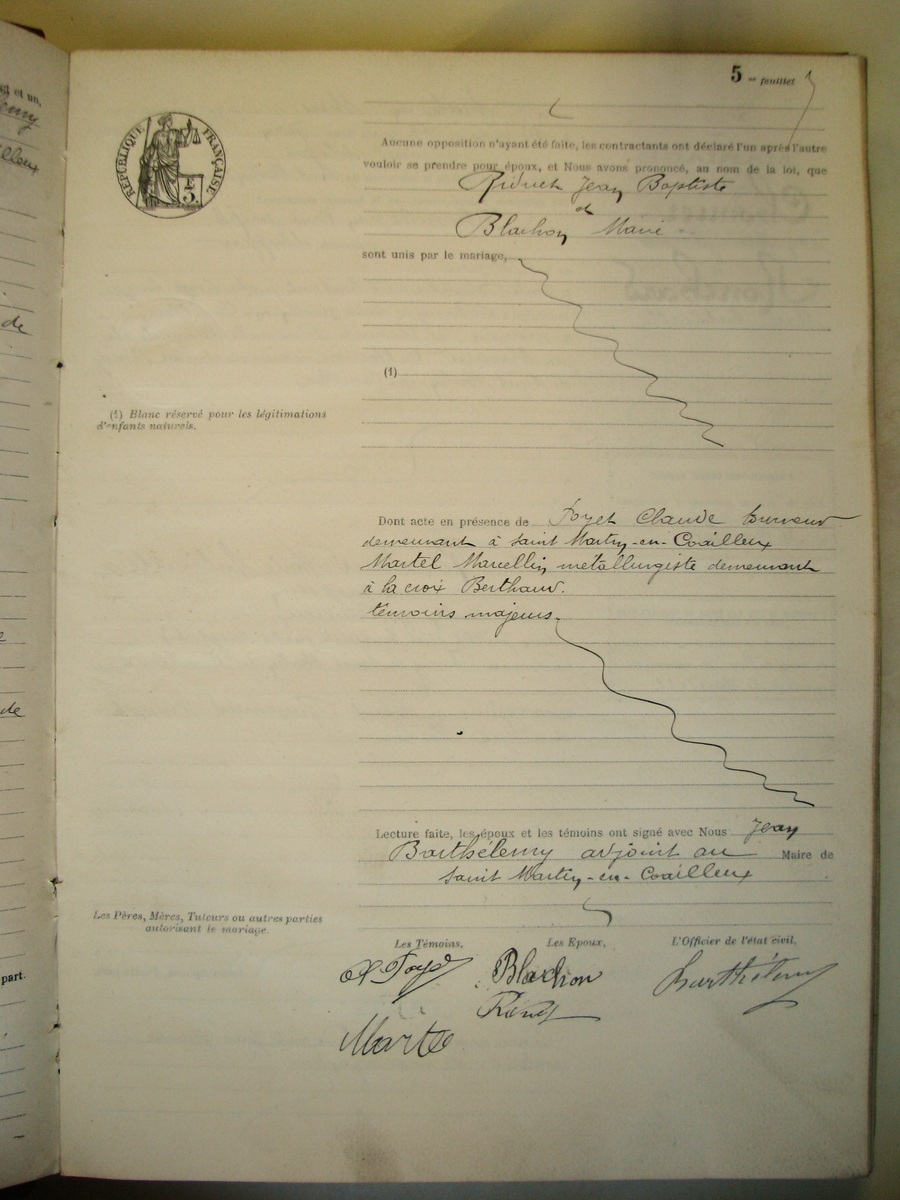 5 me feuillet
RÉPUBLIQUE FRANÇAISE
5
Aucune opposition n'ayant été faite, les contractants ont déclaré l'un après l'autre
vouloir se prendre pour époux, et Nous avons prononcé, au nom de la loi, que
Jean Baptiste
et
Blachon Marie
sont unis par le mariage,
(1)
(1) Blanc réservé pour les légitimations
d'enfants naturels.
Dont acte en présence de Foyet Claude tourneur
demeurant à Saint Martin-en-Coailleux
Martel Marcellin métallurgiste demeurant
à la croix Berthaud.
témoins majeurs.
Lecture faite, les époux et les témoins ont signé avec Nous Jean
Barthélemy adjoint au Maire de
Saint Martin-en-Coailleux
Les Pères, Mères, Tuteurs ou autres parties
autorisant le mariage.
Les Témoins, Les Epoux, L'Officier de l'état civil,
Blachon Barthélemy
Martel
gt et un,
de
de
part.